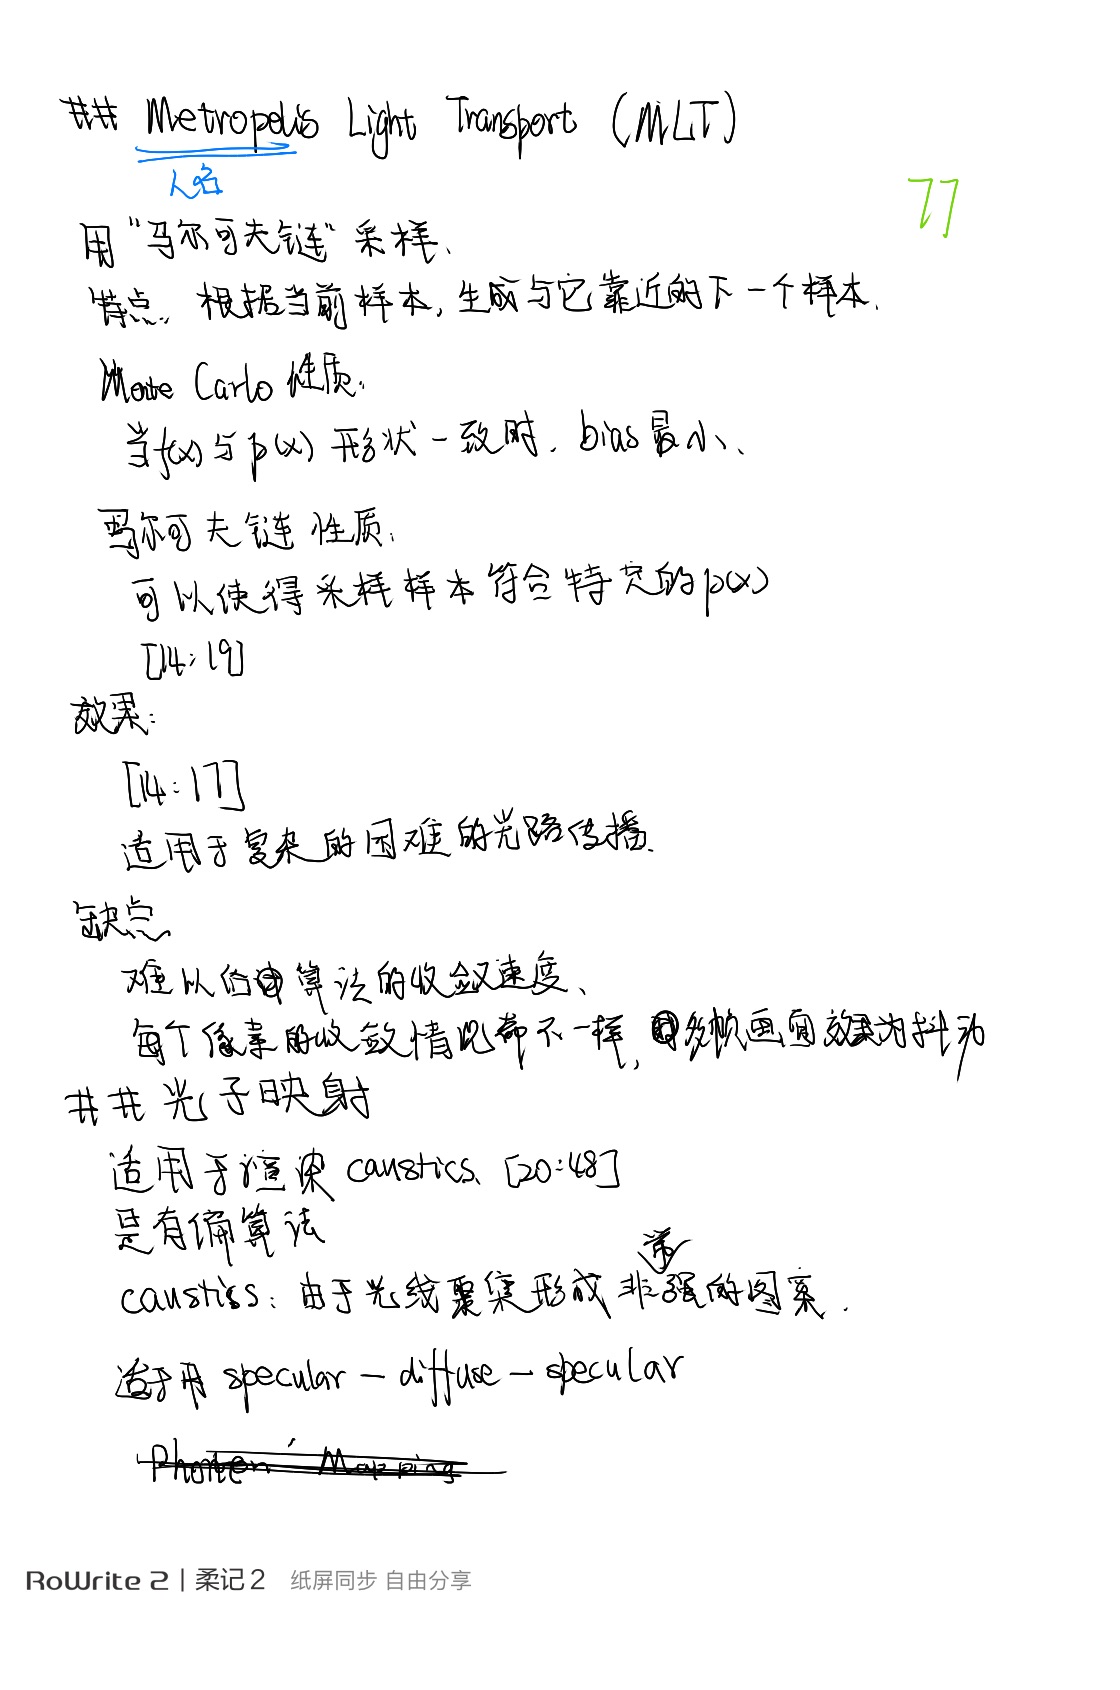 ## Metropolis Light Transport (MLT)
人名
77
用“马尔可夫链”采样、
特点: 根据当前样本, 生成与它靠近的下一个样本.
Monte Carlo 性质:
当f(x)与p(x)形状一致时. bias最小、
马尔可夫链性质:
可以使得采样样本符合特定的p(x)
[14:19]
效果:
[14:17]
适用于复杂的困难的光路传播.
缺点
难以估算法的收敛速度、
每个像素的收敛情况都不一样, 多帧画面效果为抖动
## 光子映射
适用于渲染 caustics、[20:48]
是有偏算法
caustics: 由于光线聚集形成非常强的图案.
适于用 specular — diffuse — specular
Photon Mapping
RoWrite 2 | 柔记2 纸屏同步 自由分享